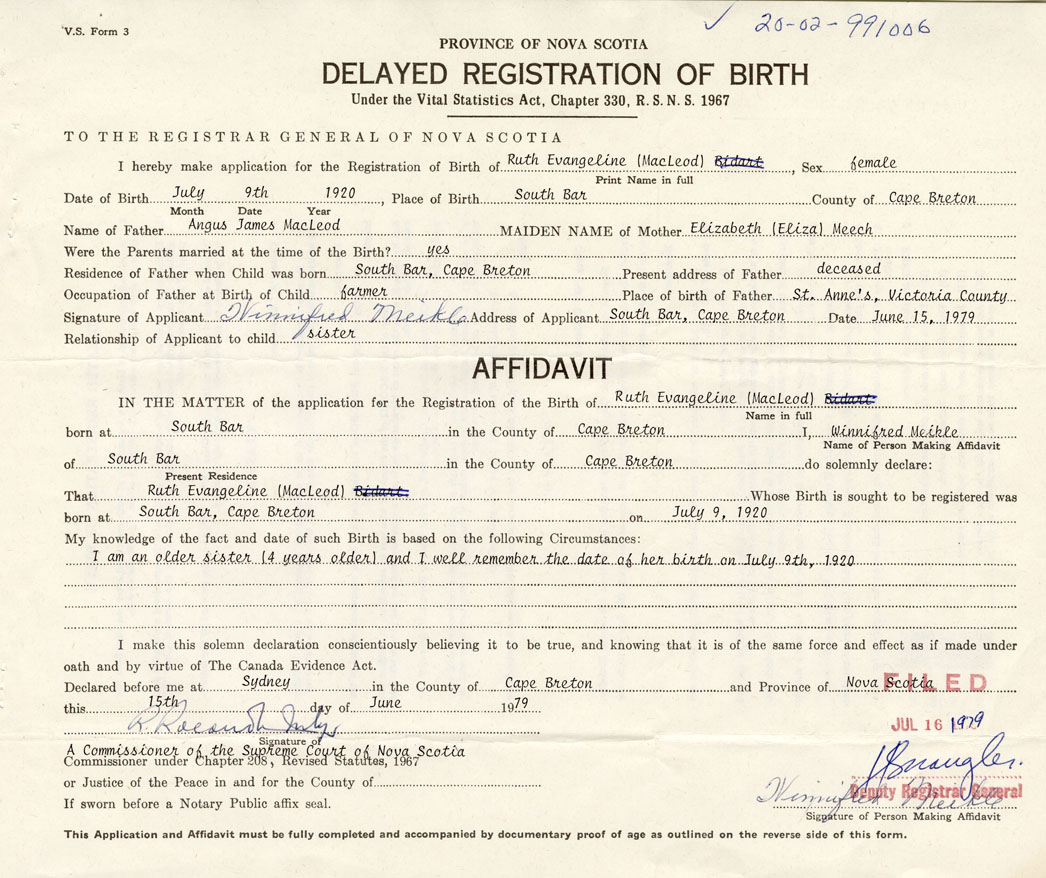 V.S. Form 3
✓ 20-02-991006
PROVINCE OF NOVA SCOTIA
DELAYED REGISTRATION OF BIRTH
Under the Vital Statistics Act, Chapter 330, R. S. N. S. 1967
TO THE REGISTRAR GENERAL OF NOVA SCOTIA
I hereby make application for the Registration of Birth of Ruth Evangeline (MacLeod) Bidart, Sex female
Print Name in full
Date of Birth July 9th 1920, Place of Birth South Bar County of Cape Breton
Month Date Year
Name of Father Angus James MacLeod MAIDEN NAME of Mother Elizabeth (Eliza) Meech
Were the Parents married at the time of the Birth? yes
Residence of Father when Child was born South Bar, Cape Breton Present address of Father deceased
Occupation of Father at Birth of Child farmer Place of birth of Father St. Anne's, Victoria County
Signature of Applicant Winnifred Meikle Address of Applicant South Bar, Cape Breton Date June 15, 1979
Relationship of Applicant to child sister
AFFIDAVIT
IN THE MATTER of the application for the Registration of the Birth of Ruth Evangeline (MacLeod) Bidart
Name in full
born at South Bar in the County of Cape Breton I, Winnifred Meikle
Name of Person Making Affidavit
of South Bar in the County of Cape Breton do solemnly declare:
Present Residence
That Ruth Evangeline (MacLeod) Bidart Whose Birth is sought to be registered was
born at South Bar, Cape Breton on July 9, 1920
My knowledge of the fact and date of such Birth is based on the following Circumstances:
I am an older sister (4 years older) and I well remember the date of her birth on July 9th, 1920
I make this solemn declaration conscientiously believing it to be true, and knowing that it is of the same force and effect as if made under
oath and by virtue of The Canada Evidence Act.
Declared before me at Sydney in the County of Cape Breton and Province of Nova Scotia
FILED
this 15th day of June 1979
JUL 16 1979
Signature of
A Commissioner of the Supreme Court of Nova Scotia
Commissioner under Chapter 208, Revised Statutes, 1967
or Justice of the Peace in and for the County of
Deputy Registrar General
Winnifred Meikle
If sworn before a Notary Public affix seal.
Signature of Person Making Affidavit
This Application and Affidavit must be fully completed and accompanied by documentary proof of age as outlined on the reverse side of this form.